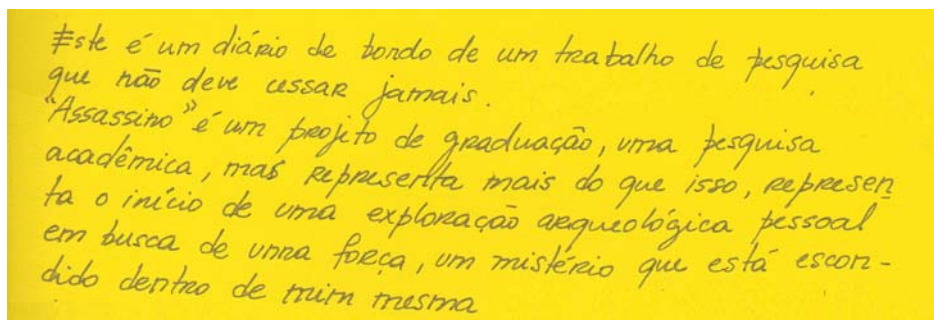 Este é um diário de bordo de um trabalho de pesquisa
que não deve cessar jamais.
"Assassino" é um projito de graduação, uma pesquisa
acadêmica, mas representa mais do que isso, represen
ta o início de uma exploração arqueológica pessoal
em busca de uma força, um mistério que está escon-
dido dentro de mim mesma